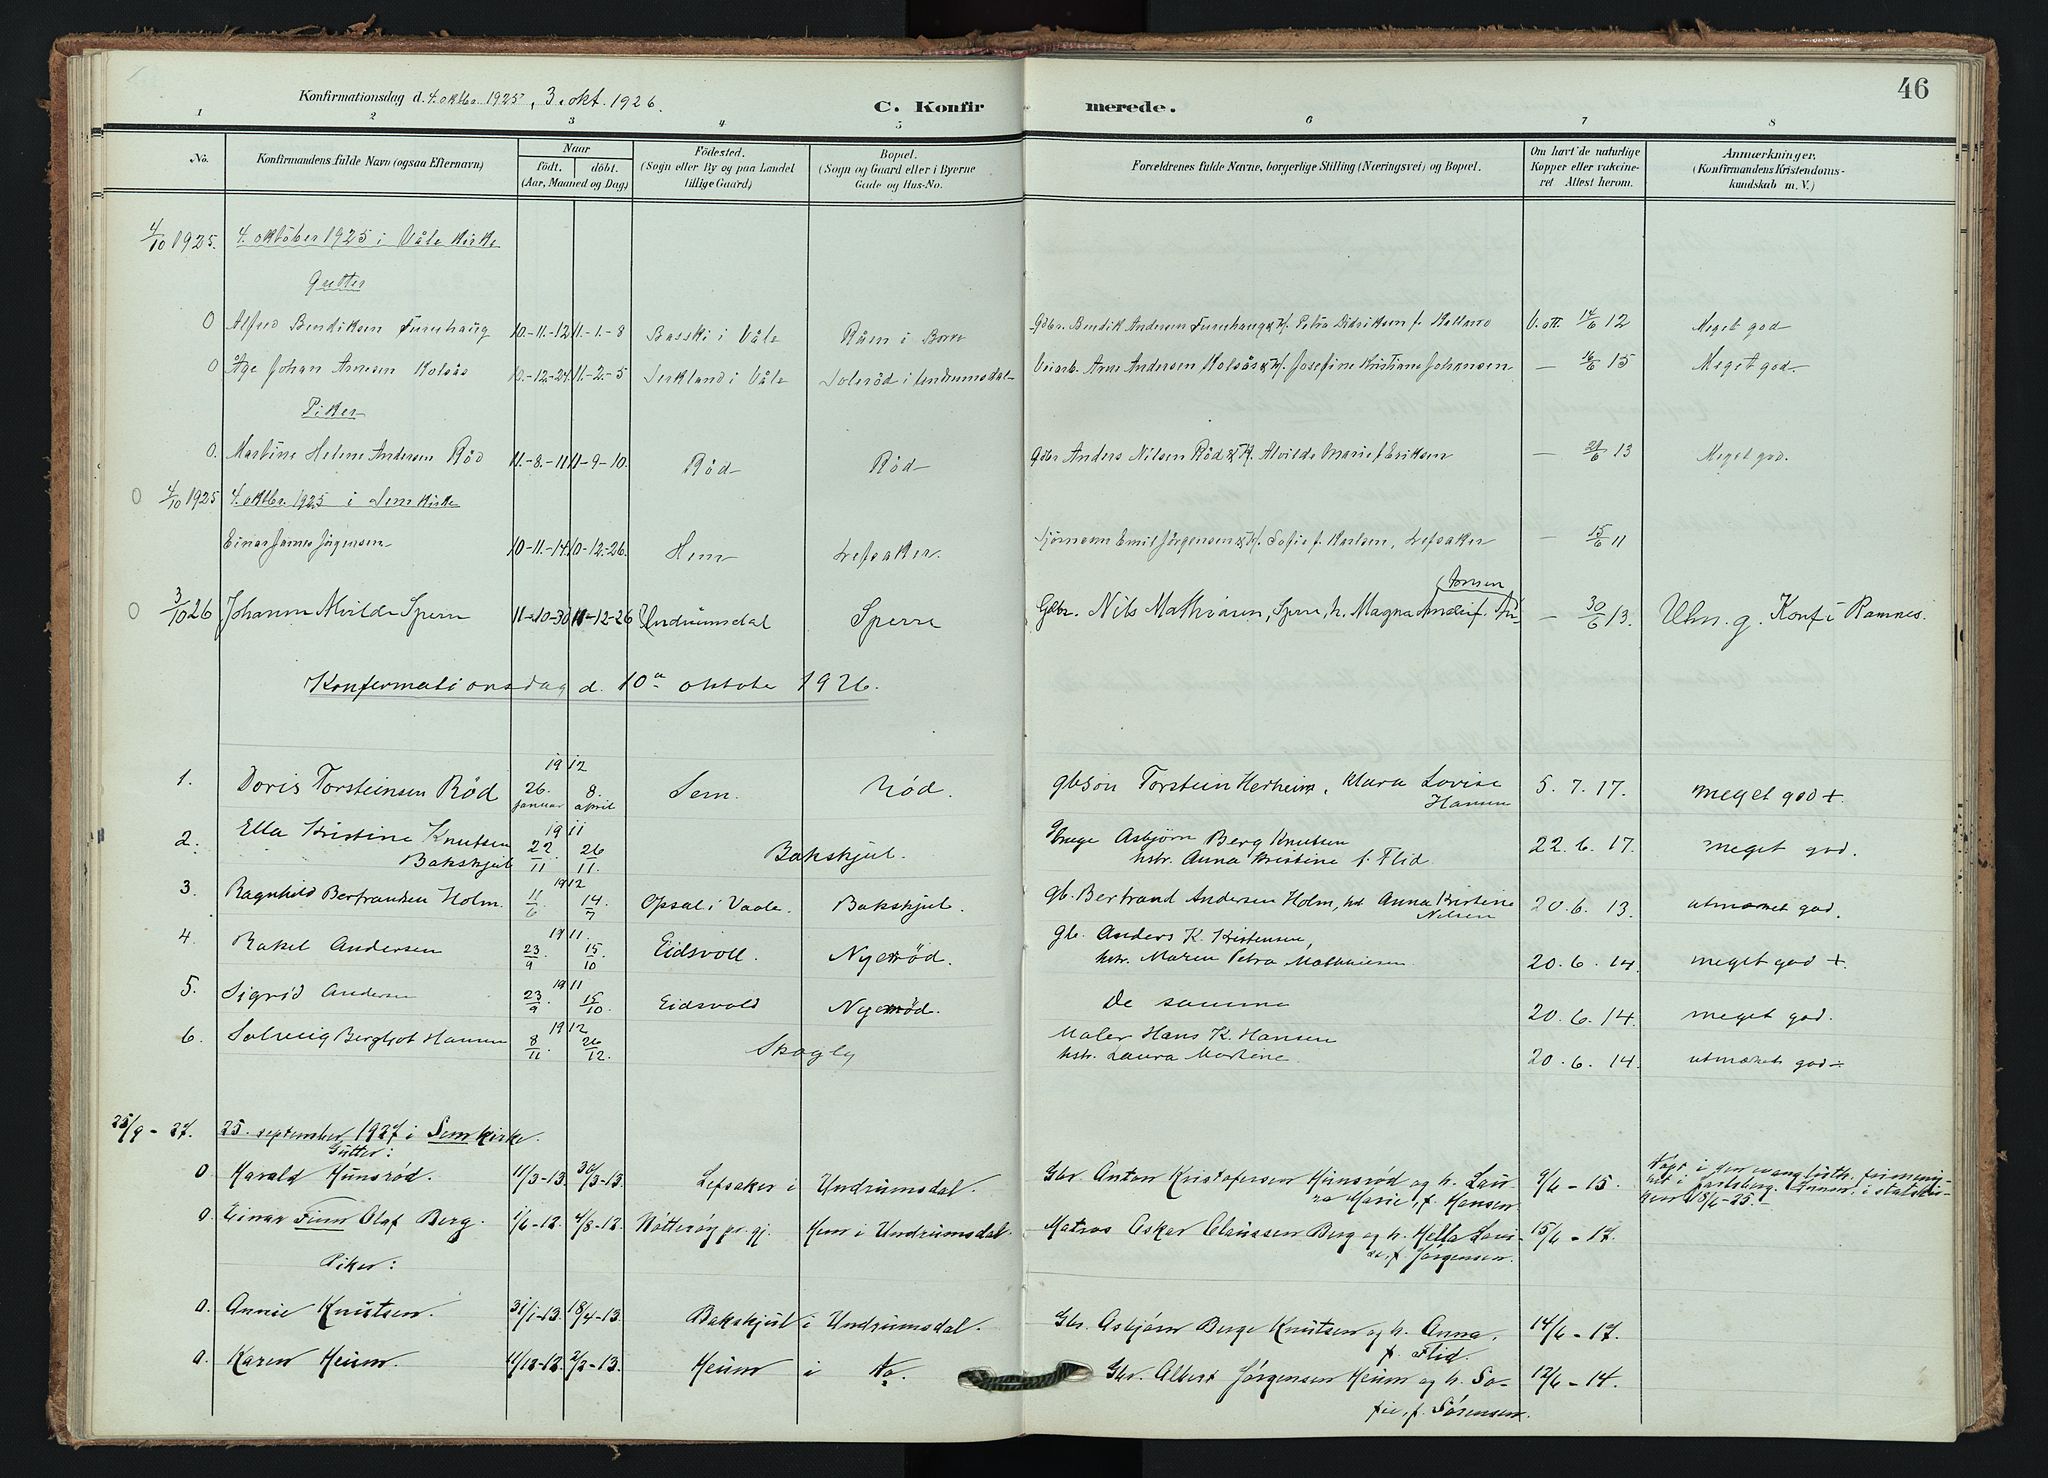 46
Konfirmationsdag d. 4. oktbr. 1925, 3. okt. 1926. C. Konfirmerede.
1 2 3 4 5 6 7 8
No. Konfirmandens fulde Navn (ogsaa Efternavn) Naar født. døbt. (Aar, Maaned og Dag) Fødested. (Sogn eller By og paa Landet tillige Gaard) Bopæl. (Sogn og Gaard eller i Byerne Gade og Hus-No. Forældrenes fulde Navne, borgerlige Stilling (Næringsvei) og Bopæl. Om havt de naturlige Kopper eller vakcineret Attest herom. Anmærkninger. (Konfirmandens Kristendomskundskab m. V.)
4/10 1925. 4. oktober 1925 i Våle kirke
Gutter
0 Alfred Bendiksen Furuhaug 10-11-12 11-1-8 i Våle Råen i Borre Gdbr. Bendik Andersen Furuhaug & H. Petra Didriksen f. V. att. 14/6 12 Meget god
0 Åge Johan Arnesen Kolsås 10-12-24 11-2-5 i Våle Solerød i Undrumsdal Veiarb. Arne Andersen Kolsås & H. Josefine Kristiane Johansen — 16/6 15 Meget god.
Piker
0. Martine Helene Andersen Rød 11-8-11 11-9-10. Rød Rød Gdbr Anders Nilsen Rød & H. Alvilde Marie Eriksen — 21/6 13 Meget god.
4/10 1925 4. oktbr. 1925 i Sem kirke
Einar James Jørgensen 10-11-14 10-12-26. Hem Lefsaker. Sjømann Emil Jørgensen & H. Sofie f. Karlsen, Lefsaker — 15/6 11
3/10 26 Johanne Alvilde Sperre 11-10-30 11-12-26 Undrumsdal Sperre Gdbr. Nils Mathiasen, Sperre, h. Magna — 30/6 13. Konf i Ramnes.
Konfirmationsdag d. 10de oktober 1926.
1. Doris Torsteinsen Rød 1912 26. januar 8. april Sem. Rød. gbsøn Torstein Herheim, Klara Lovise Hansen 5. 7. 17. meget god +.
2. Ella Kristine Knutsen Bakskjul 1911 22/11 26/11. Bakskjul. Asbjørn Berg Knutsen hstr. Anna Kristine f. Flid 22. 6. 17. meget god.
3. Ragnhild Bertrandsen Holm. 1912 11/6 14/7 Opsal i Vaale. Bakskjul. gb. Bertrand Andersen Holm, hst Anna Kristine Nilsen 20. 6. 13. utmærket god.
4. Rakel Andersen 1911. 23/9 15/10 Eidsvoll. Nyerød. gb. Anders K. Kristensen, hstr. Maren Petra Mathiesen 20. 6. 14. meget god +.
5. Sigrid Andersen 1911 23/9 15/10 Eidsvold Nyerød. De samme 20. 6. 14. meget god.
6. Solveig Bergljot Hansen 1912 8/11. 26/12. Skogly Maler Hans K. Hansen hstr. Laura Martine 20. 6. 14. utmærket god ÷
25/9 - 27. 25. september 1927 i Sem kirke.
Gutter:
0 Harald Hunsrød. 11/3-13. 30/3-13. Lefsaker i Undrumsdal. Gbr. Anton Kristofersen Hunsrød og h. Laura Marie, f. Hansen. 9/6 - 15.
0. Einar Finn Olaf Berg. 1/6-12. 4/8-12. Nøtterøy pr. gj. Hem i Undrumsdal. Matros Oskar Claussen Berg og h. Helfa Lovise, f. Jørgensen. 15/6 - 17.
Piker:
0. Annie Knutsen. 31/1-13. 18/4-13. Bakskjul i Undrumsdal. Gbr. Asbjørn Berge Knutsen og h. Anna, f. Flid. 14/6 - 17.
0. Karen Heum. 11/12-12. 2/2-13. Heum i No. Gbr. Albert Jørgensen Heum og h. Sofie, f. Sørensen. 12/6 - 14.